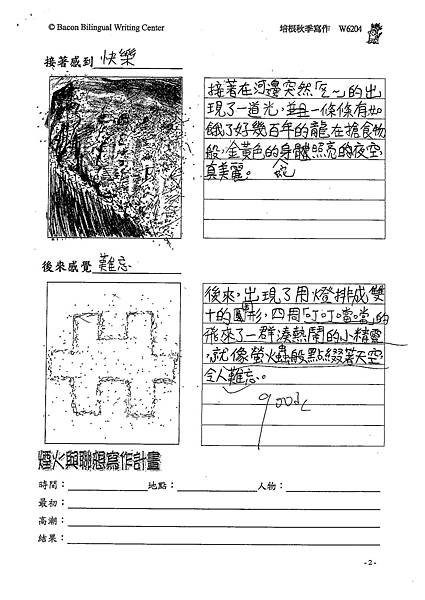 © Bacon Bilingual Writing Center
培根秋季寫作 W6204
接著感到 快樂
接著在河邊突然「乞~」的出
現了一道光,並且一條條有如
餓了好幾百年的龍在搶食物
般,金黃色的身體照亮的夜空,
真美麗。
後來感覺 難忘
後來,出現了用燈排成雙
十的圖形,四周「叮叮噹噹」的
飛來了一群湊熱鬧的小精靈
,就像螢火蟲般點綴著天空,
令人難忘。
good
煙火與聯想寫作計畫
時間: 地點: 人物:
最初:
高潮:
結果:
-2-